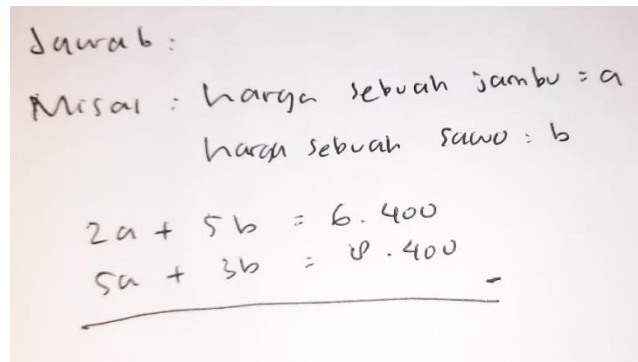 Jawab :
Misal : harga sebuah jambu = a
harga sebuah sawo : b
2a + 5b = 6.400
5a + 3b = 8.400
-